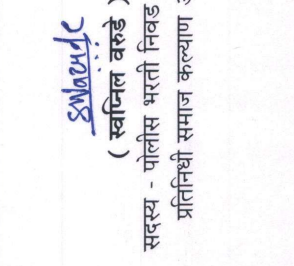 swarude
( स्वप्निल वरुडे )
सदस्य - पोलीस भरती निवड
प्रतिनिधी समाज कल्याण